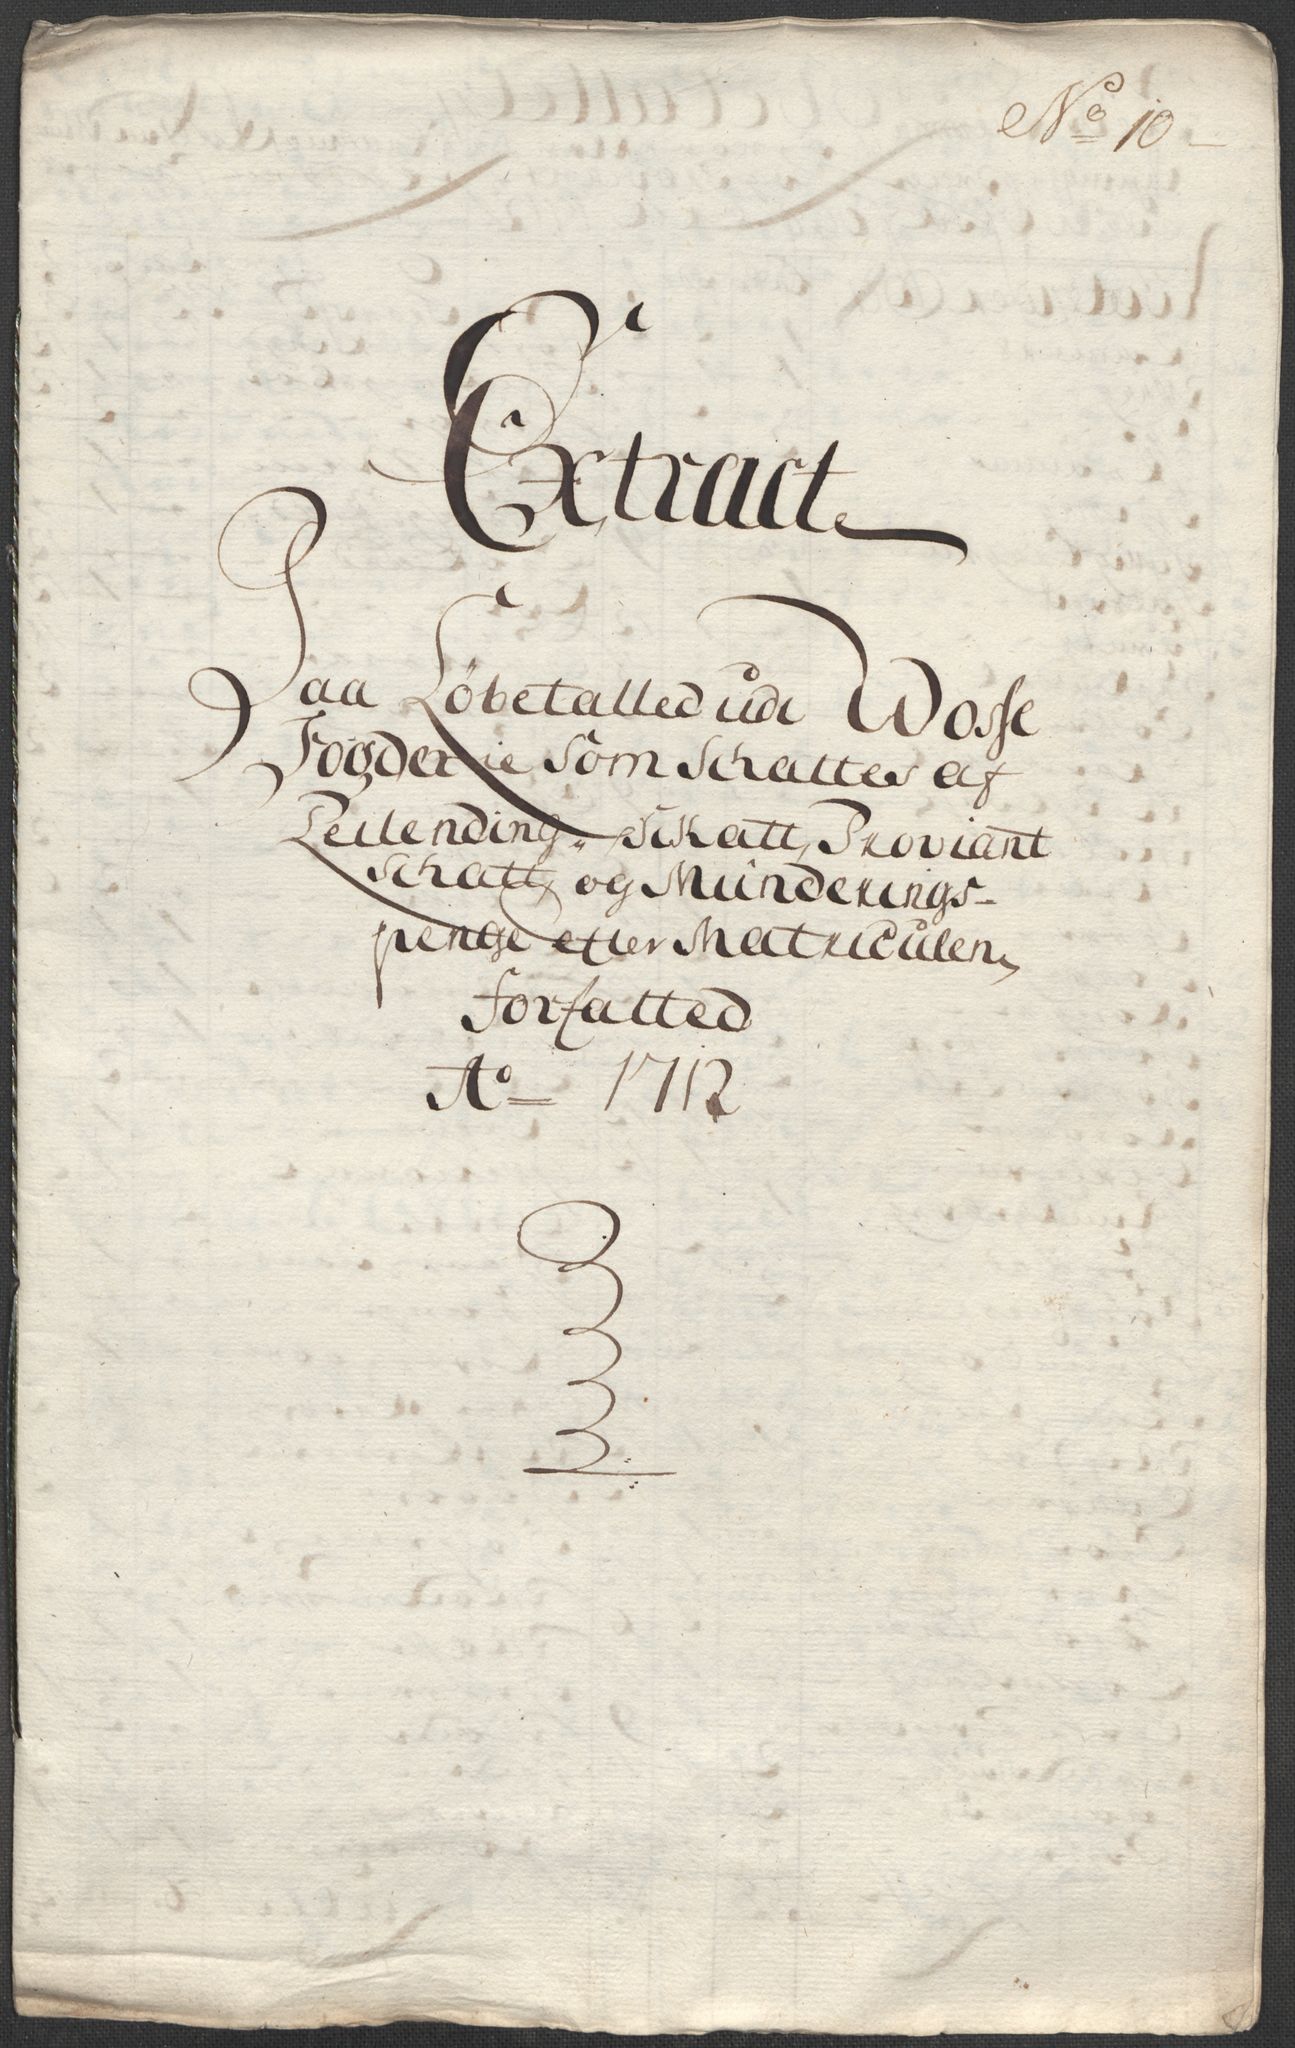 No 10
Extract
Paa Löbetalled udi Wosse
Fogderie Som Schattes af
Leilending Skatt, Proviant
Schatt, og Munderings-
penge efter Matriculen,
forfatted
Ao 1712